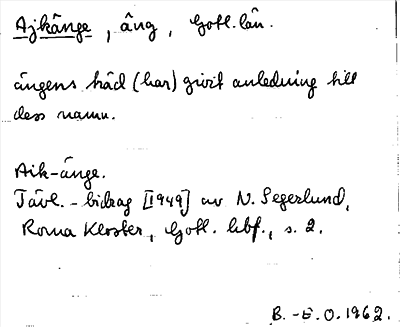 Ajkänge, äng, Gotl. län.
ängens träd (har) givit anledning till
dess namn.
Aik-änge.
Tävl. - bidrag [1949] av N. Segerlund,
Roma Kloster, Gotl. hbf., s. 2.
B.-E.O. 1962.